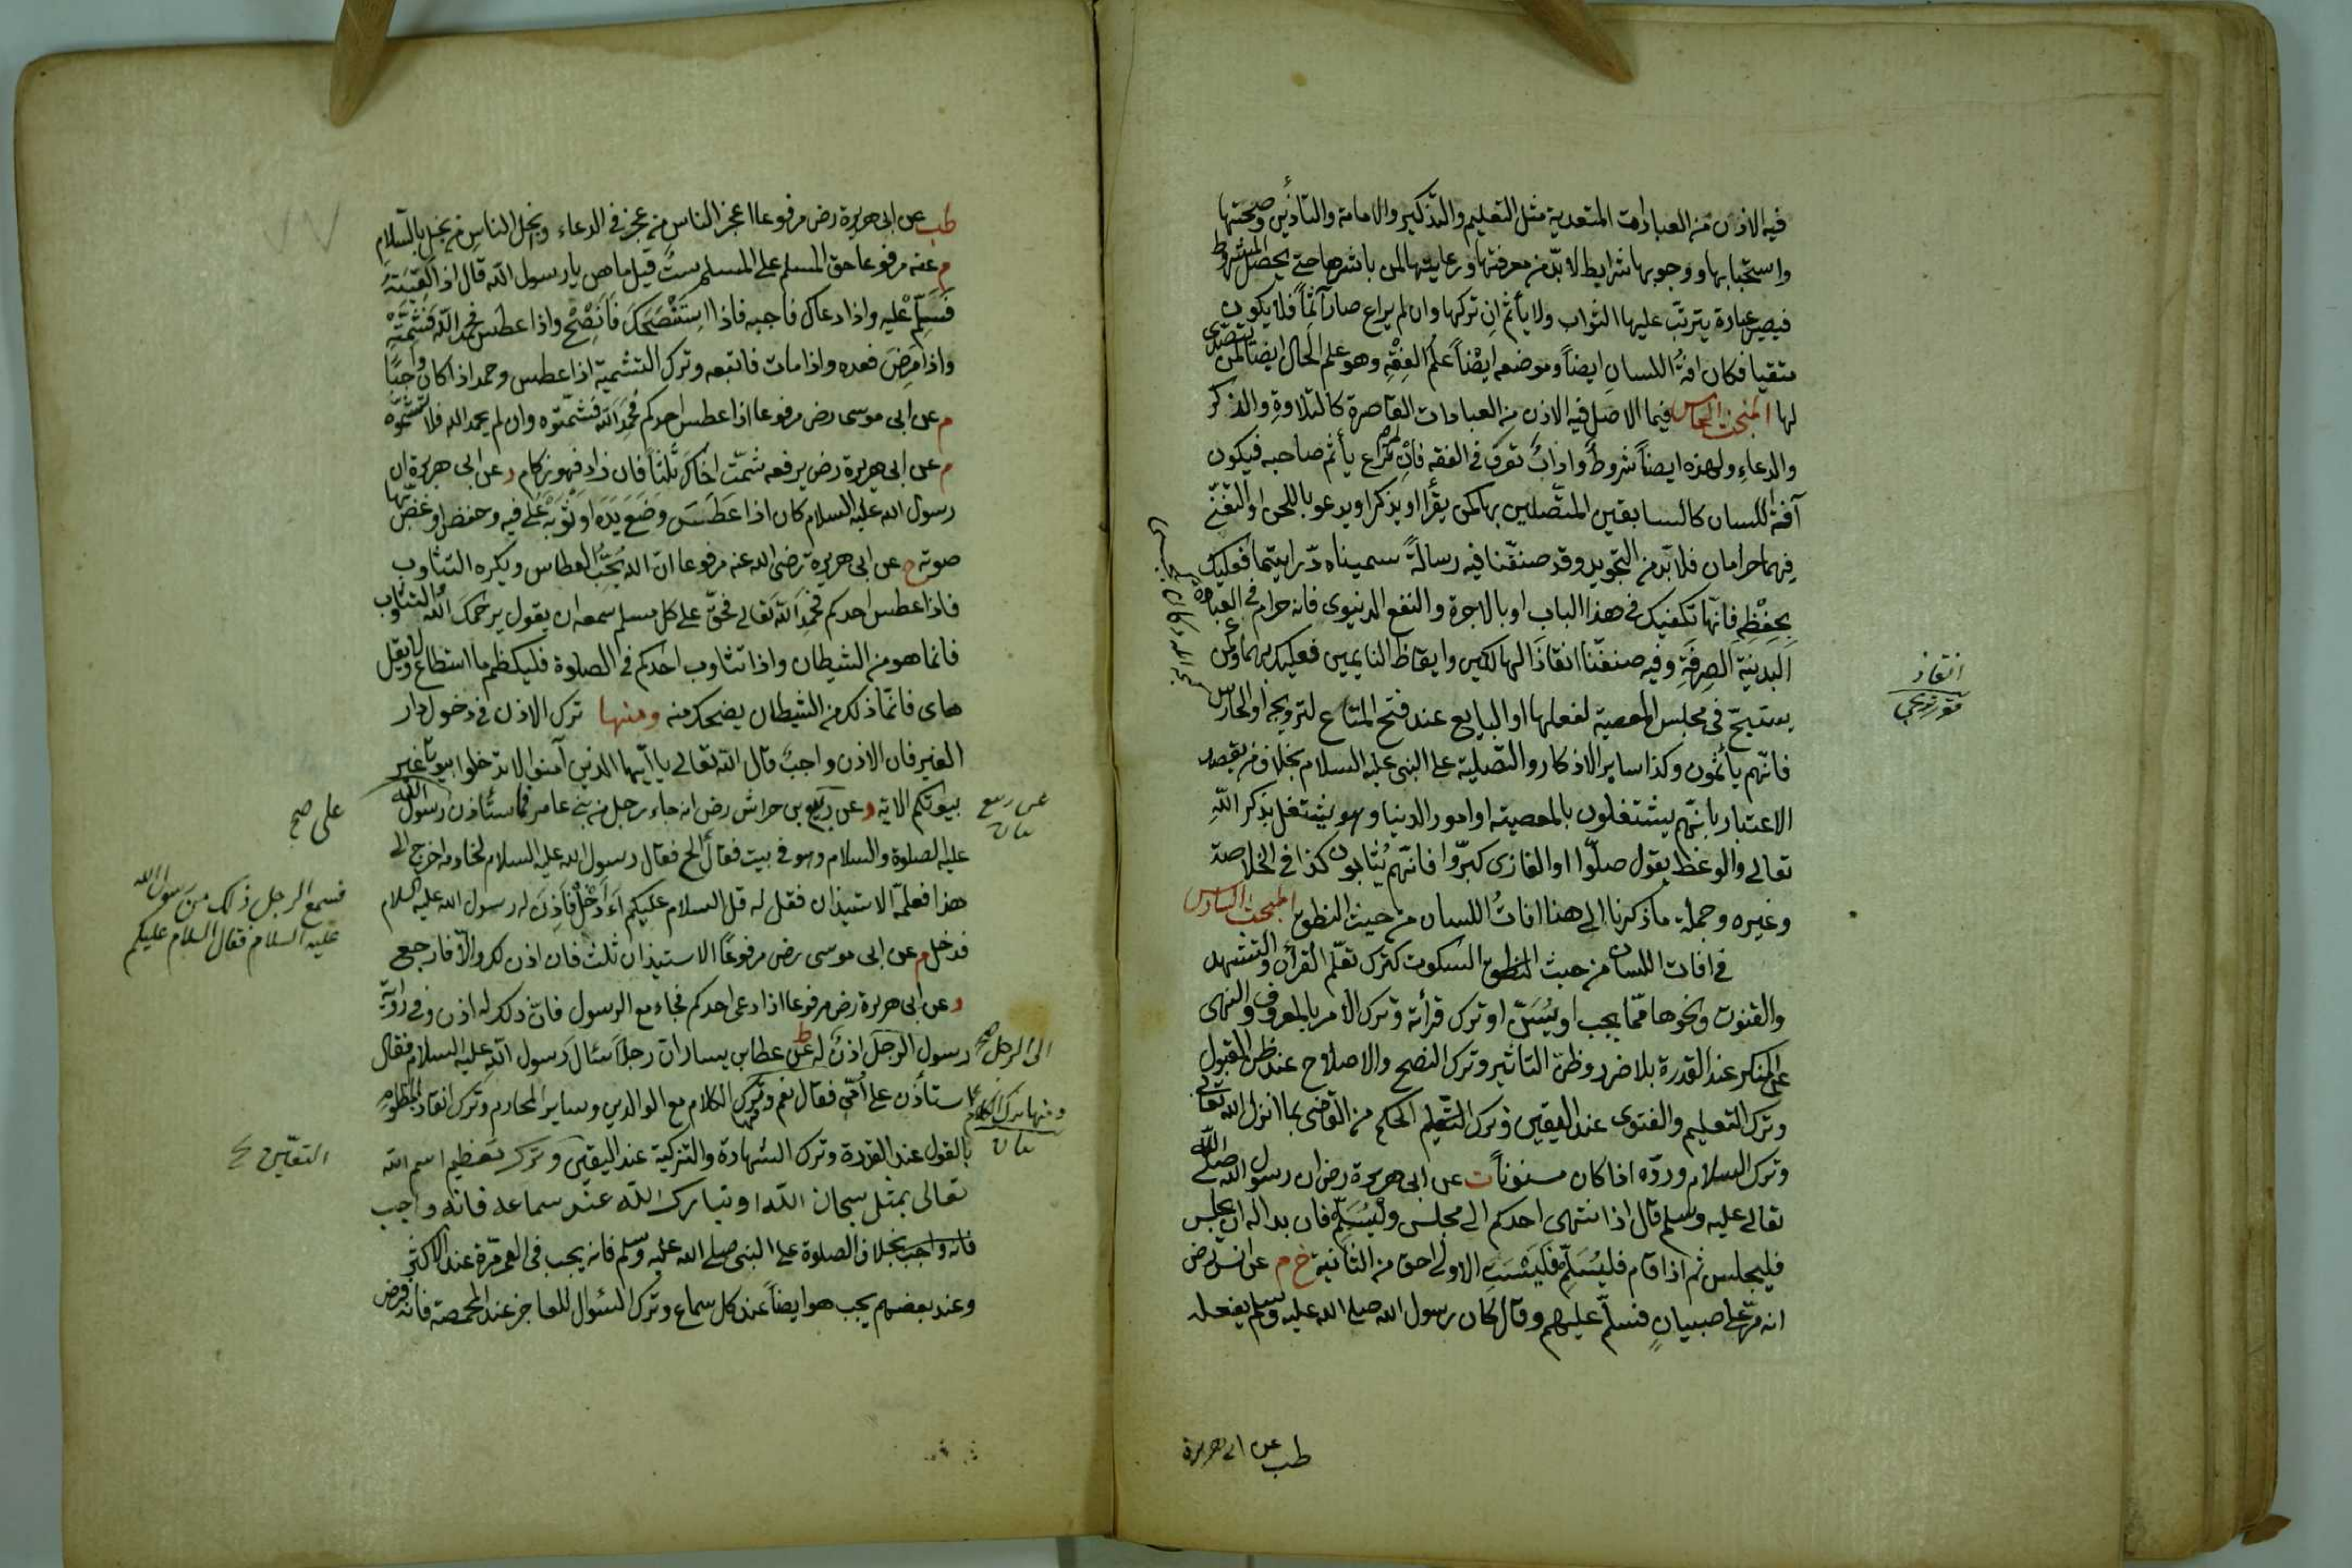 فيه الاذن من العبادات المتعدية مثل التعليم والتذكير والامامة والتأذين وصحتها
واستحبابها ووجوبها شرايط لابد من معرفتها ورعايتها لمن باشرها حتى يحصل المشروط
فيصير عبادة يترتب عليها الثواب ولا يأثم ان تركها وان لم يراع صار آثما فلا يكون
متقيا فكان افة اللسان ايضا وموضعه ايضا علم الفقه وهو علم الحال ايضا لمن تصدى
لها المبحث الخامس فيما الاصل فيه الاذن من العبادات القاصرة كالتلاوة والذكر
والدعاء ولهذه ايضا شروط واداب تعرف في الفقه فان لم تراع يأثم صاحبه فيكون
آفة اللسان كالسابقين المتصلين بها كمن يقرأ او يذكر او يدعو باللحن او التغني
فهما حرامان فلا بد من التجويد وقد صنفنا فيه رسالة سميناه درا يتيما فعليك
بحفظه فانها تكفيك في هذا الباب او بالاجرة والنفع الدنيوي فانه حرام في العبادة
البدنية الصرفة وفيه صنفنا انقاذ الهالكين وايقاظ النايمين فعليك بهما وكمن
يسبح في مجلس المعصية لفعلها او البايع عند فتح المتاع لترويجه او الحارس
فانهم يأثمون وكذا ساير الاذكار والتصلية على النبي عليه السلام بخلاف من يقصد
الاعتبار بانهم يشتغلون بالمعصية او امور الدنيا وهو يشتغل بذكر الله
تعالى والوعظ يقول صلوا او الغازى كبروا فانهم يثابون كذا في الخلاصة
وغيره وجملة ما ذكرنا الى هنا افات اللسان من حيث النطق المبحث السادس
في افات اللسان من حيث السكوت كترك تعلم القرأن والتشهد
والقنوت ونحوها مما يجب او يسن او ترك قرأته وترك الامر بالمعروف والنهي
عن المنكر عند القدرة بلا ضرر وظن التاثير وترك النصح والاصلاح عند ظن القبول
وترك التعليم والفتوى عند اليقين وترك الحكم من القاضى بما انزل الله تعالى
وترك السلام ورده اذا كان مسنونا ت عن ابى هريرة رض ان رسول الله صلى الله
تعالى عليه وسلم قال اذا انتهى احدكم الى مجلس وليسلم فان بدا له ان يجلس
فليجلس ثم اذا قام فليسلم فليست الاولى احق من الثانية خ م عن انس رض
انه مر على صبيان فسلم عليهم وقال كان رسول الله صلى الله عليه وسلم يفعله
انقاذ
قورتريجى
طب عن ابي هريرة
طب عن ابى هريرة رض مرفوعا اعجز الناس من عجز في الدعاء وبخل الناس من بخل بالسلام
م عنه مرفوعا حق المسلم على المسلم ست قيل ما هن يا رسول الله قال اذا لقيته
فسلم عليه واذا دعاك فاجبه فاذا استنصحك فانصح واذا عطس فحمد الله فشمته
واذا مرض فعده واذا مات فاتبعه وترك التشمية اذا عطس وحمد اذا كان واجبا
م عن ابى موسى رض مرفوعا اذا عطس احدكم فحمد الله فشمتوه وان لم يحمد الله فلا تشمتوه
م عن ابى هريرة رض يرفعه شمت اخاك ثلثا فان زاد فهو زكام د عن ابى هريرة ان
رسول الله عليه السلام كان اذا عطس وضع يده او ثوبه على فيه وخفض او غض بها
صوته خ عن ابى هريرة رضى الله عنه مرفوعا ان الله يحب العطاس ويكره التثاوب
فاذا عطس احدكم فحمد الله تعالى فحق على كل مسلم سمعه ان يقول يرحمك الله والتثاوب
فانما هو من الشيطان واذا تثاوب احدكم في الصلوة فليكظم ما استطاع ولا يقل
هاى فانما ذلك من الشيطان يضحك منه ومنها ترك الاذن في دخول دار
الغير فان الاذن واجب قال الله تعالى يا ايها الذين آمنوا لا تدخلوا بيوتا غير
بيوتكم الاية د عن ربيع بن حراش رض انه جاء رجل من بنى عامر فاستأذن رسول الله
عليه الصلوة والسلام وهو في بيت فقال ألج فقال رسول الله عليه السلام لخادمه اخرج الى
هذا فعلمه الاستيذان فقل له قل السلام عليكم أادخل فاذن له رسول الله عليه السلام
فدخل م عن ابى موسى رض مرفوعا الاستيذان ثلث فان اذن لك والا فارجع
د عن ابى هريرة رض مرفوعا اذا دعى احدكم فجاء مع الرسول فان ذلك له اذن وفي رواية
رسول الرجل اذن له ط عن عطا بن يسار ان رجلا سئال رسول الله عليه السلام فقال
استأذن على امي فقال نعم وترك الكلام مع الوالدين وساير المحارم وترك انقاذ المظلوم
بالقول عند القدرة وترك الشهادة والتزكية عند اليقين وترك تعظيم اسم الله
تعالى بمثل سبحان الله او تبارك الله عند سماعه فانه واجب
فانه واجب بخلاف الصلوة على النبى صلى الله عليه وسلم فانه يجب في العمر مرة عند الاكثر
وعند بعضهم يجب هو ايضا عند كل سماع وترك السئوال للعاجز عند المخمصة فانه فرض
عن ربيع
الى الرجل صح
ومنها ترك الكلام
على صح
فسمع الرجل ذلك من رسول الله
عليه السلام فقال السلام عليكم